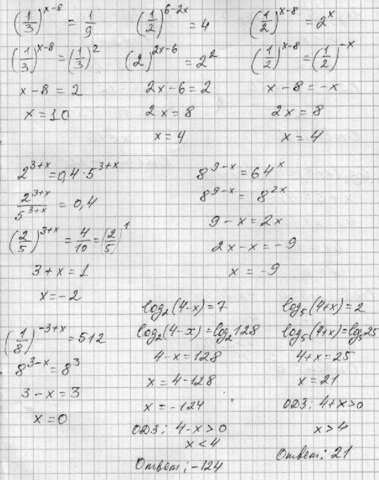 (1/3)^(x-8) = 1/9
(1/3)^(x-8) = (1/3)^2
x - 8 = 2
x = 10
(1/2)^(6-2x) = 4
(2)^(2x-6) = 2^2
2x - 6 = 2
2x = 8
x = 4
(1/2)^(x-8) = 2^x
(1/2)^(x-8) = (1/2)^(-x)
x - 8 = -x
2x = 8
x = 4
2^(3+x) = 0,4 · 5^(3+x)
2^(3+x)/5^(3+x) = 0,4
(2/5)^(3+x) = 4/10 = (2/5)^1
3 + x = 1
x = -2
8^(9-x) = 64^x
8^(9-x) = 8^(2x)
9 - x = 2x
2x - x = -9
x = -9
(1/8)^(-3+x) = 512
8^(3-x) = 8^3
3 - x = 3
x = 0
log₂(4-x) = 7
log₂(4-x) = log₂128
4 - x = 128
x = 4 - 128
x = -124
ОДЗ: 4 - x > 0
x < 4
Ответ: -124
log₅(4+x) = 2
log₅(4+x) = log₅25
4 + x = 25
x = 21
ОДЗ: 4 + x > 0
x > 4
Ответ: 21